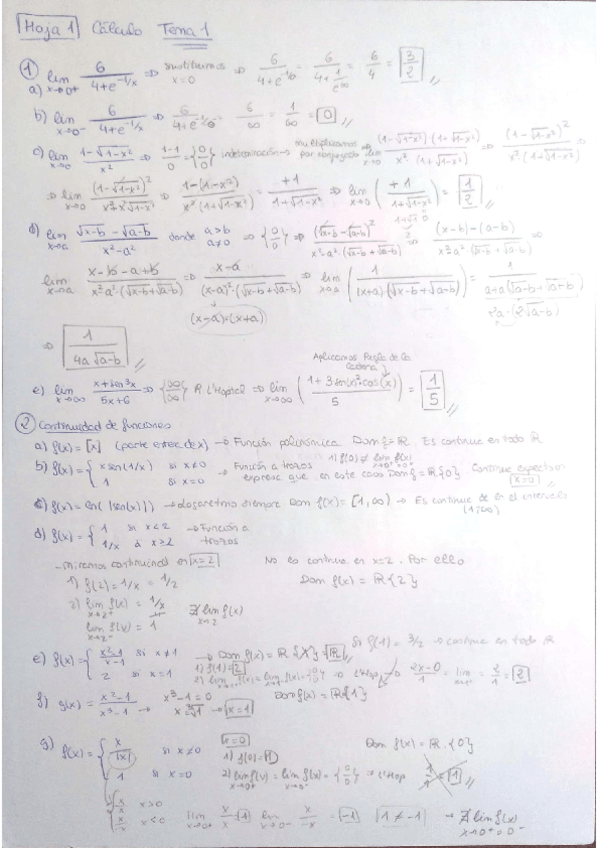 Hoja 1 Cálculo Tema 1
①
a) lim x→0+ 6/(4+e^(-1/x)) ⇒ sustituimos x=0 ⇒ 6/(4+e^(-1/0)) = 6/(4+1/e^∞) = 6/4 = 3/2
b) lim x→0- 6/(4+e^(-1/x)) ⇒ 6/(4+e^(-1/0)) = 6/∞ = 1/∞ = 0
c) lim x→0 (1-√(1-x²))/x² ⇒ (1-1)/0 = {0/0} indeterminación → multiplicamos por conjugado lim x→0 ((1-√(1-x²))·(1+√(1-x²)))/(x²·(1+√(1-x²))) ⇒ (1-√(1-x²))²/(x²·(1+√(1-x²))) ⇒
⇒ lim x→0 (1-√(1-x²))²/(x²+x²√(1-x²)) ⇒ (1-(1-x²))/(x²·(1+√(1-x²))) = +1/(1+√(1-x²)) ⇒ lim x→0 (+1/(1+√(1-x²))) = 1/2
d) lim x→a (√(x-b) - √(a-b))/(x²-a²) donde a>b a≠0 ⇒ {0/0} ⇒ (√(x-b)-√(a-b))²/(x²-a²·(√(x-b)+√(a-b))) ⇒ (x-b)-(a-b)/(x²-a²·(√(x-b)+√(a-b))) ⇒
lim x→a (x-b-a+b)/(x²-a²·(√(x-b)+√(a-b))) ⇒ (x-a)/((x-a)²·(√(x-b)+√(a-b))) ⇒ lim x→a (1/((x+a)·(√(x-b)+√(a-b)))) = 1/(a+a(√(a-b)+√(a-b)))
(x-a)·(x+a) 2a·(2√(a-b))
⇒ 1/(4a√(a-b))
Aplicamos Regla de la cadena
e) lim x→∞ (x+sen³x)/(5x+6) ⇒ {∞/∞} R. L'Hôpital ⇒ lim x→∞ ((1+3·sen(x)²·cos(x))/5) = 1/5
② Continuidad de funciones
a) f(x) = [x] (parte entera de x) → Función polinómica Dom f = ℝ Es continua en todo ℝ
b) f(x) = { x sen(1/x) si x≠0 → Función a trozos
1 si x=0
en este caso Dom f = ℝ{0} x=0
c) f(x) = ln(|sen(x)|) → siempre Dom f(x) = [1,∞) → Es continua en el intervalo (1,∞)
d) f(x) = { 1 si x<2 → Función a trozos
1/x si x≥2
- miramos continuidad en x=2 No es continua en x=2. Por ello
1) f(2) = 1/x = 1/2 Dom f(x) = ℝ{2}
2) lim x→2+ f(x) = 1/x ∄ lim x→2 f(x)
lim x→2- f(x) = 1
Si f(1) = 3/2 → continua en todo ℝ
e) f(x) = { (x²-1)/(x-1) si x≠1 → Dom f(x) = ℝ
2 si x=1 1) f(1) = 2
L'Hop ⇒ (2x-0)/1 = lim x→1 2/1 = 2
f) g(x) = (x²-1)/(x³-1) → x³-1=0 Dom f(x) = ℝ{1}
x=∛1 → x=1
g) f(x) = { x/|x| si x≠0 x=0 Dom f(x) = ℝ·{0}
1) f(0) = 1
1 si x=0 2) lim x→0+ f(x) = lim x→0- f(x) = {0/0} ⇒ L'Hop 1
x/x x>0
x/-x x<0 lim x→0+ x/x = 1 lim x→0- x/-x = -1 1≠-1 → ∄ lim f(x) x→0+=0-